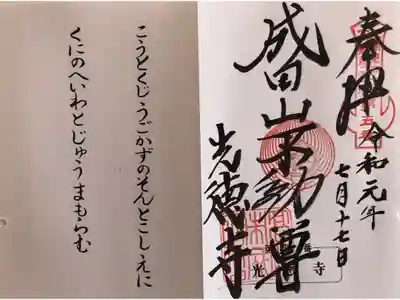 奉拝
令和元年
七月十七日
成田山不動尊
光徳寺
こうとくじうごかずのそんとこしえに
くにのへいわとじゅうまもらむ